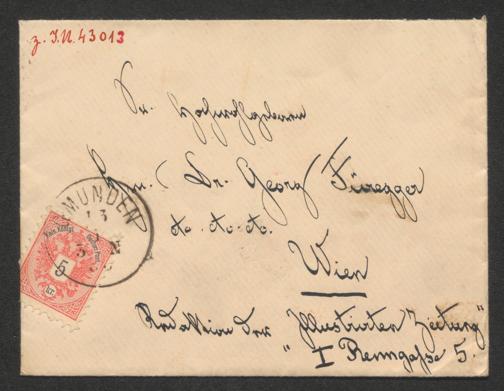 z. I.N. 43013
Sr. Hochwohlgeboren
Hrn. Dr. Georg Furegger
etc. etc. etc.
Wien
Redaktion der "Illustrirten Zeitung"
I Renngasse 5.
MUNDEN
13
5
kr.